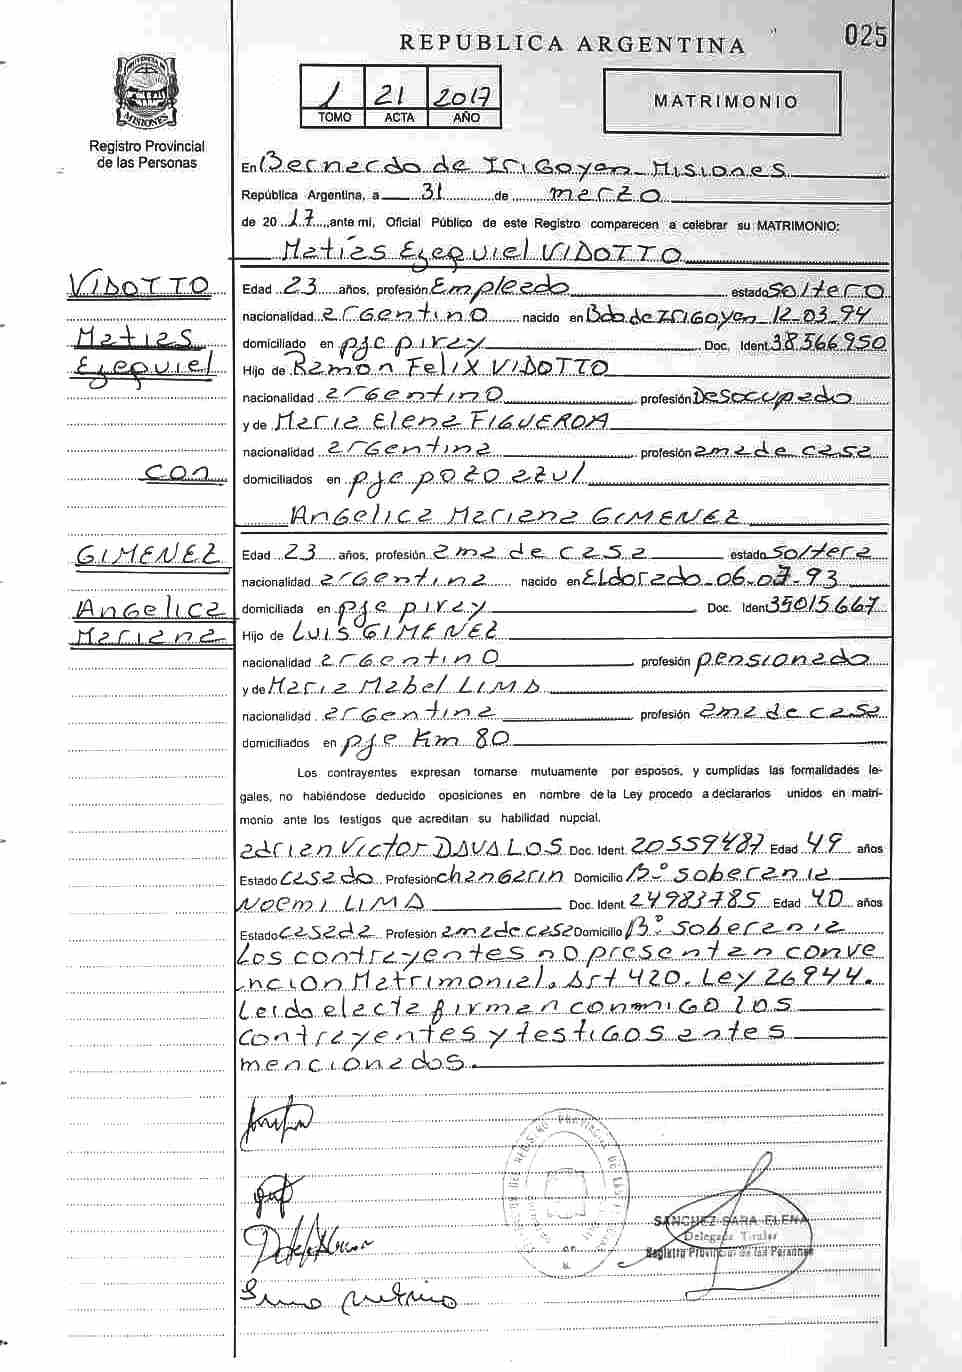 REPUBLICA ARGENTINA
025
1 21 2017
TOMO ACTA AÑO
MATRIMONIO
MISIONES
Registro Provincial
de las Personas
En Bernardo de Irigoyen Misiones
República Argentina, a 31 de marzo
de 2017, ante mi, Oficial Público de este Registro comparecen a celebrar su MATRIMONIO:
Matías Ezequiel VIDOTTO
VIDOTTO
Matias
Ezequiel
Edad 23 años, profesión Empleado estado soltero
nacionalidad argentino nacido en Bdo de Irigoyen 12-03-94
domiciliado en pje piray Doc. Ident 38366950
Hijo de Ramon Felix VIDOTTO
nacionalidad argentino profesión Desocupado
y de Maria Elena FIGUEROA
nacionalidad argentina profesión ama de casa
con
domiciliados en pje pozo azul
Angelica Mariana GIMENEZ
GIMENEZ
Angelica
Mariana
Edad 23 años, profesión ama de casa estado soltera
nacionalidad argentina nacido en Eldorado-06-07-93
domiciliada en pje piray Doc. Ident 35015667
Hijo de Luis GIMENEZ
nacionalidad argentino profesión pensionado
y de Maria Mabel LIMA
nacionalidad argentina profesión ama de casa
domiciliados en pje Km 80
Los contrayentes expresan tomarse mutuamente por esposos, y cumplidas las formalidades le-
gales, no habiéndose deducido oposiciones en nombre de la Ley procedo a declararlos unidos en matri-
monio ante los testigos que acreditan su habilidad nupcial.
adrian Victor DAVALOS Doc. Ident. 20559487 Edad 49 años
Estado casado Profesión changarin Domicilio B° soberania
Noemi LIMA Doc. Ident. 24983785 Edad 40 años
Estado casada Profesión ama de casa Domicilio B° soberania
Los contrayentes no presentan conve
ncion Matrimonial. Art 420. Ley 26944.
Leida el acta firman conmigo los
contrayentes y testigos antes
mencionados.
SANCHEZ SARA ELENA
Delegada Titular
Registro Provincial de las Personas